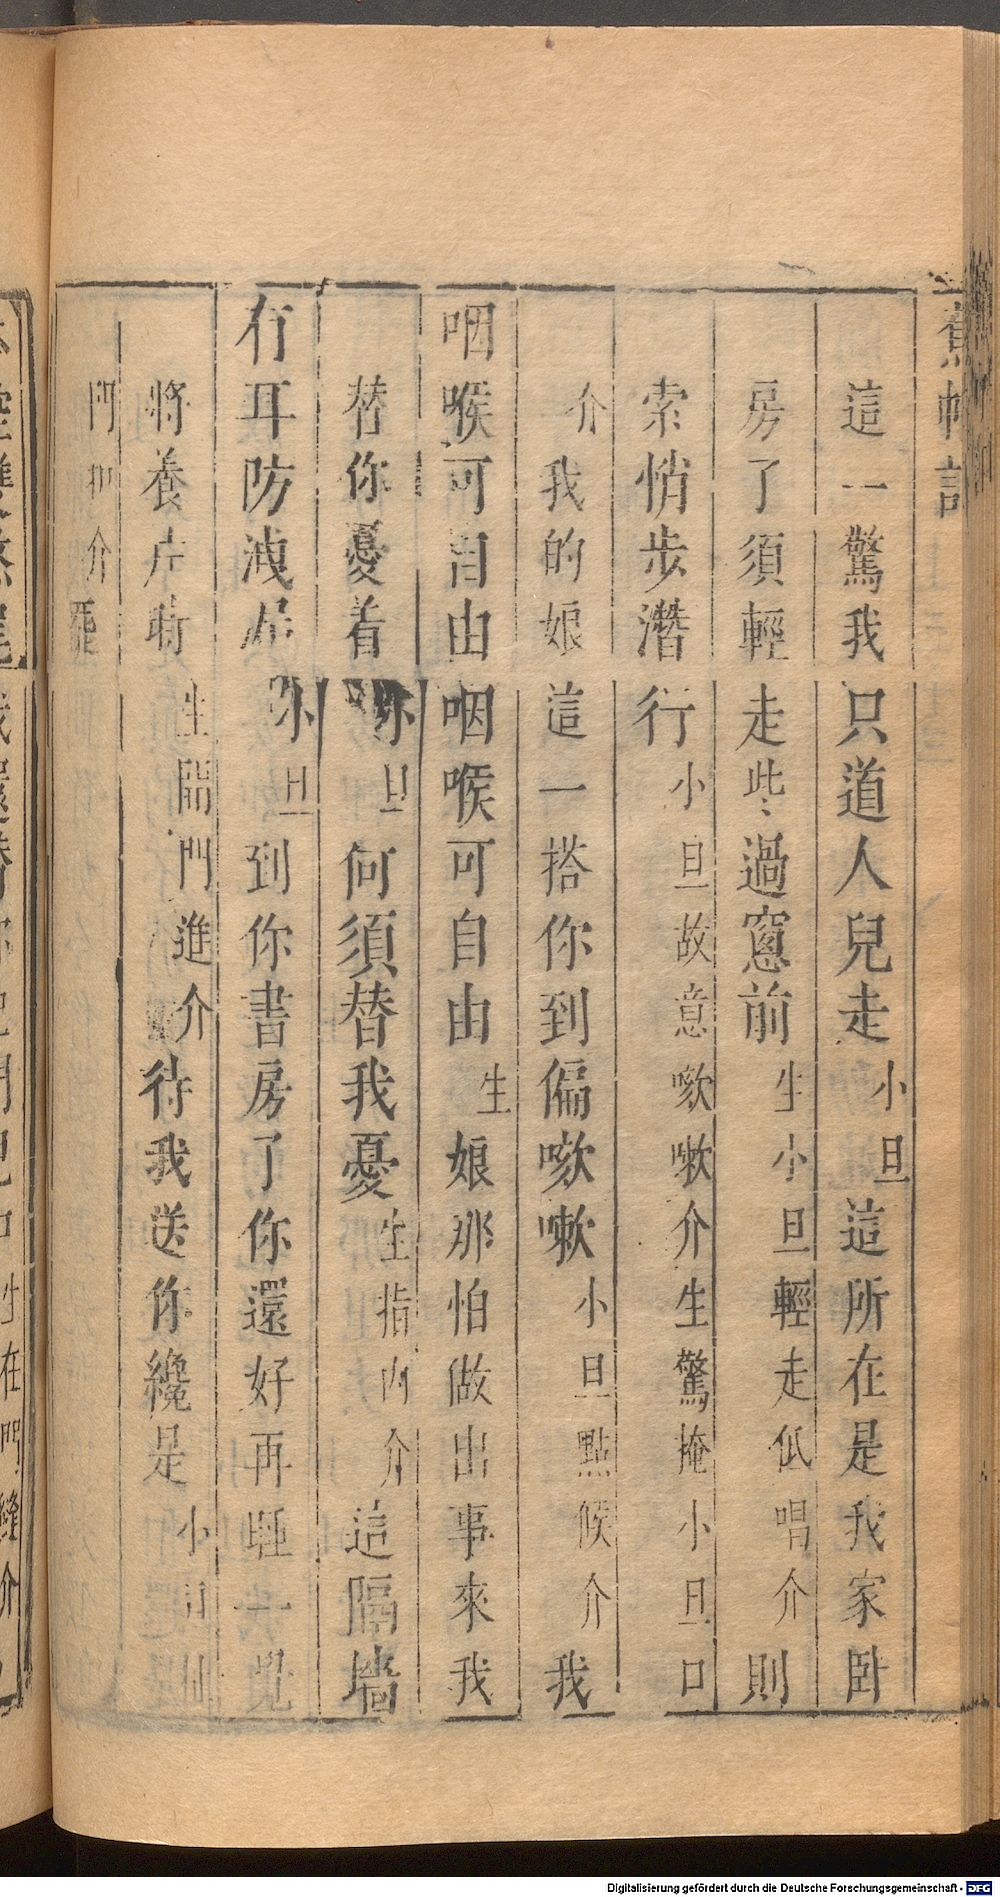 蕉帕記
這一驚我只道人兒走小旦這所在是我家卧
房了須輕走些過窻前生小旦輕走低唱介則
索悄步潛行小旦故意嗽嗽介生驚掩小旦口
介我的娘這一搭你到偏嗽嗽小旦點候介我
咽喉可自由咽喉可自由生娘那怕做出事來我
替你憂着你旦何須替我憂生指内介這隔墻
有耳防洩漏小旦到你書房了你還好再睡一覺
將養片時生開門進介待我送你纔是小旦
門介罷
生在門縫介
Digitalisierung gefördert durch die Deutsche Forschungsgemeinschaft - DFG